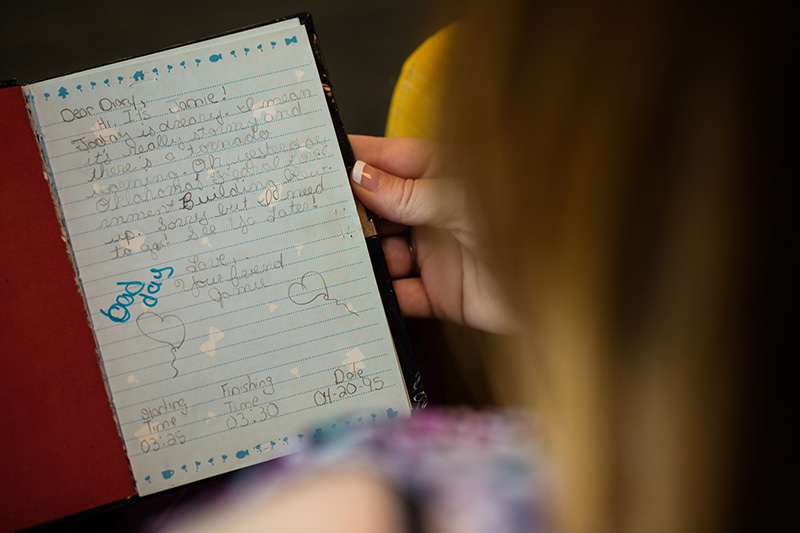 Dear Diary,
Hi, It's Jamie!
Today is dreary. I mean
it's really stormy and
there's a tornado
warning. Oh, yesterday
Oklahoma's Fedral Gover
rnment Building blew
up. Sorry but I need
to go. See Ya Later!
Love,
Your friend
Jamie
bad
day
Starting
Time
03:25
Finishing
Time
03:30
Date
04-20-95